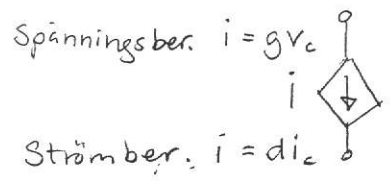 Spänningsber. i = gv_c
i
Strömber. i = di_c